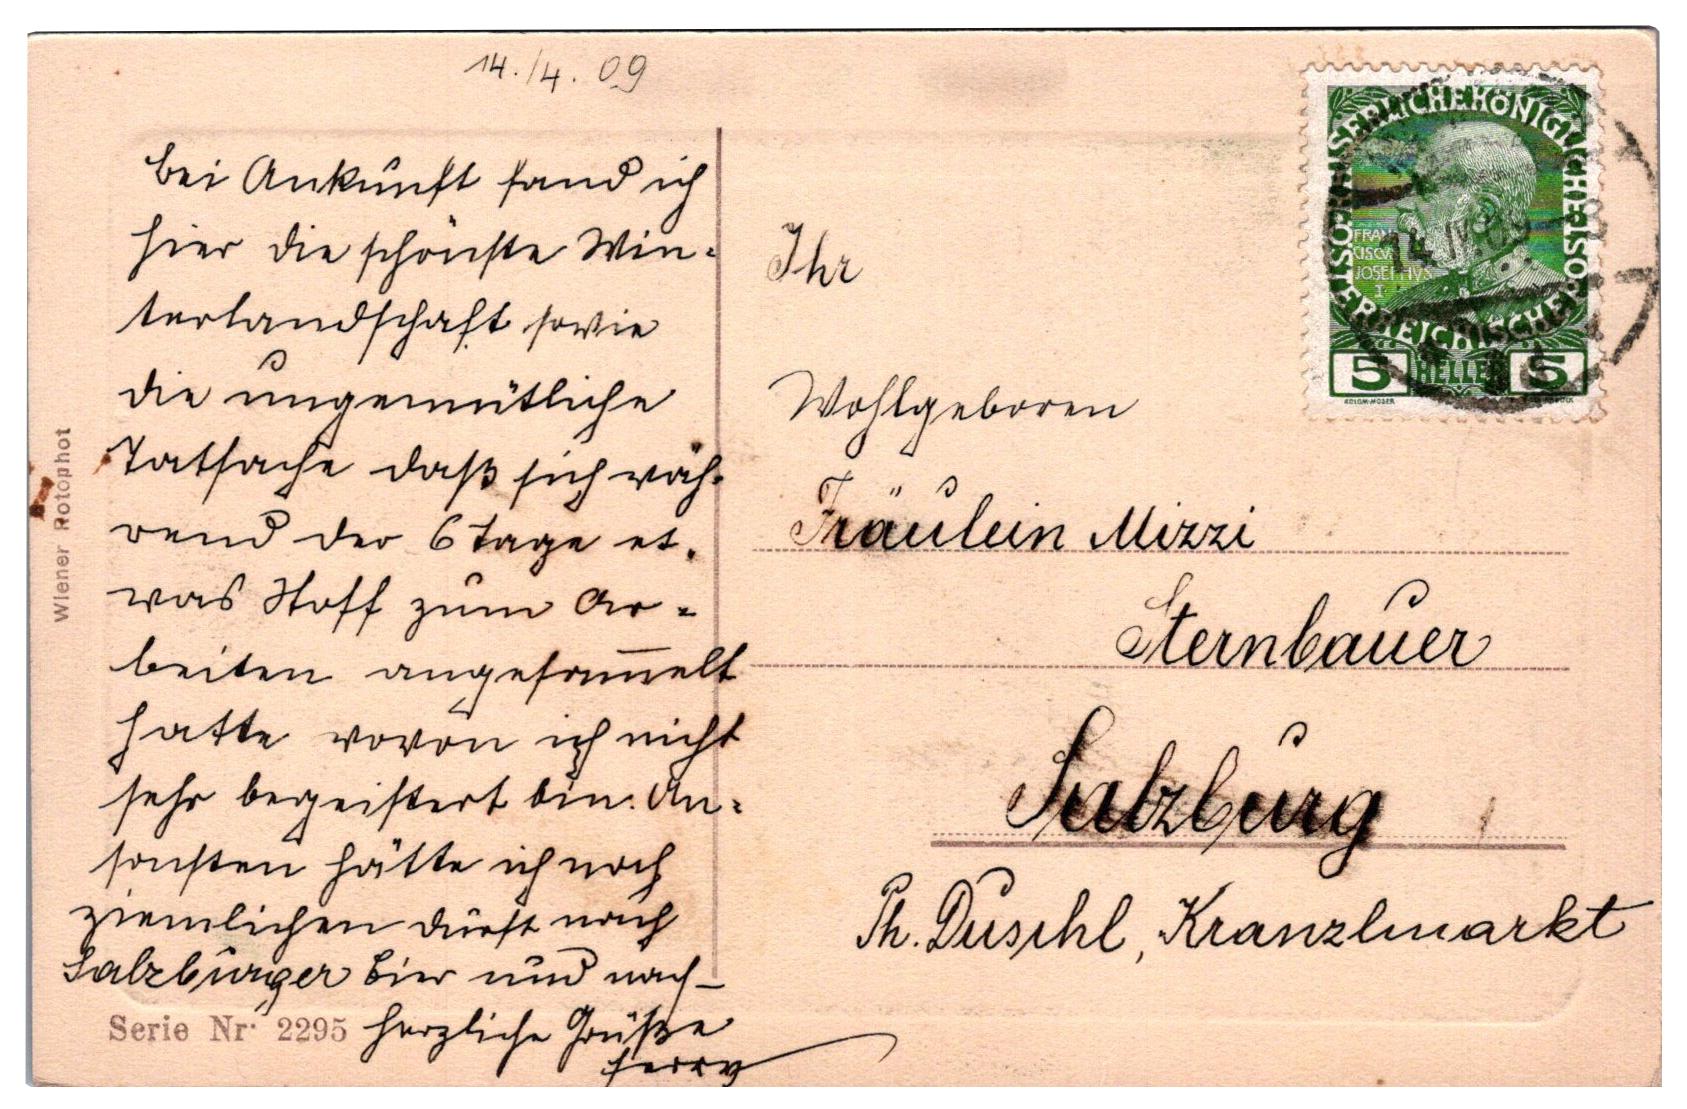 14./4. 09
bei Ankunft fand ich
hier die schönste Win-
terlandschaft sowie
die ungemütliche
Tatsache daß sich wäh-
rend der 6 Tage et-
was Stoff zum Ar-
beiten angesam̅elt
hatte wovon ich nicht
sehr begeistert bin. An-
sonsten hätte ich noch
ziemlichen Durst nach
Salzburger Bier und noch-
herzliche Grüße
Ferry
Ihr
Wohlgeboren
Fräulein Mizzi
Sternbauer
Salzburg
Ph. Duschl, Kranzlmarkt
Wiener Rotophot
Serie Nr. 2295
KAISERLICHEKÖNIGLICHEÖSTERREICHISCHEPOST
FRAN
CISCVS
JOSEPHVS
I
5 HELLER 5
KOLOM·MOSER
14 IV 09